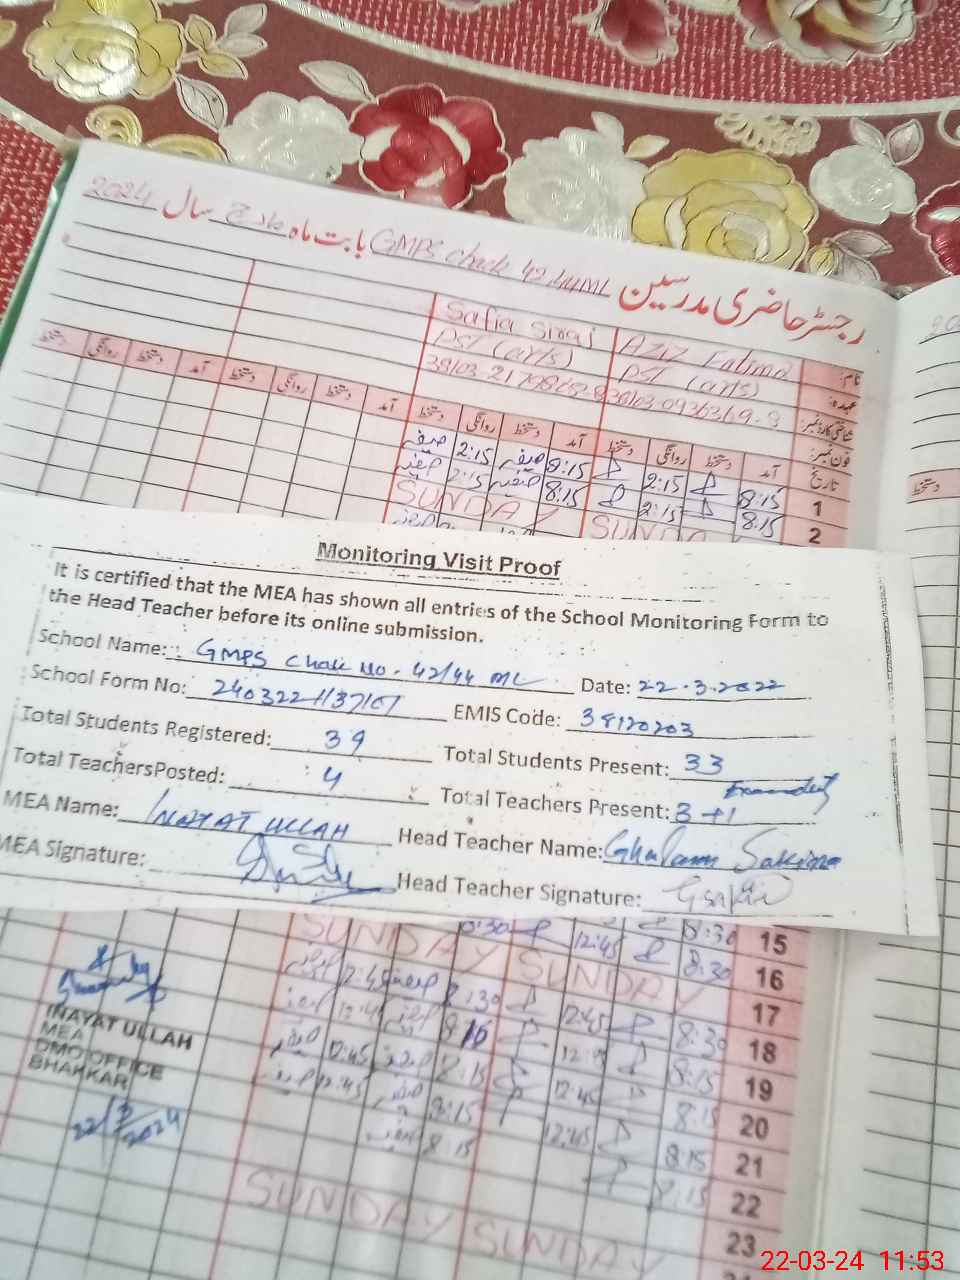 رجسٹر حاضری مدرسین GMPS chack 42/44ML بابت ماہ مارچ سال 2024
نام: Aziz Fatima Safia Siraj
عہدہ: PST (arts) PST (arts)
شناختی کارڈ نمبر:
فون نمبر:
تاریخ آمد دستخط روانگی دستخط آمد دستخط روانگی دستخط آمد دستخط روانگی دستخط آمد دستخط روانگی دستخط
1 8:15 2:15 8:15 صفیہ 2:15 صفیہ
2 8:15 2:15 8:15 صفیہ 2:15 صفیہ
SUNDAY SUNDAY
Monitoring Visit Proof
It is certified that the MEA has shown all entries of the School Monitoring Form to
the Head Teacher before its online submission.
School Name: GMPS Chak No. 42/44 ML Date: 22.3.2022
School Form No: EMIS Code: 38120203
Total Students Registered: 39 Total Students Present: 33
Total TeachersPosted: 4 Total Teachers Present: 3+1
MEA Name: INAYAT ULLAH Head Teacher Name: Ghulam Sakina
MEA Signature: Head Teacher Signature:
15 8:30 12:45 8:30
16 8:30
SUNDAY SUNDAY
17
18 8:30 12:45 8:30 12:45
19 8:15 8:15
20 8:15 12:45 8:15 12:45
21 8:15 12:45 8:15 12:45
22 8:15 8:15
23
SUNDAY SUNDAY
INAYAT ULLAH
MEA
DMO OFFICE
BHAKKAR
22/3/2024
22-03-24 11:53